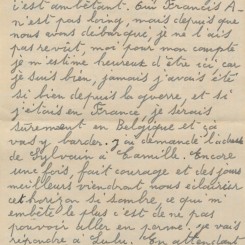 c'est embêtant. Oui Francis A-
n'est pas loing, mais depuis que
nous avons débarqué, je ne l'ais
pas revoit, moi pour mon compte
je m'estime heureux d'être ici car
je suis bien, jamais j'avais été
si bien depuis la guerre, et si
j'étais en France je serais
surement en Belgique et ça
vas y barder. J'ai demandé l'adresse
de Sylvain à Camille. Encore
une fois, fait courage et des jours
meilleurs viendront nous éclaircir
cet horizon si sombre, ce qui m'
embête le plus c'est de ne pas
pouvoir aller en perme. Je vais
répondre à Lulu. En attendant